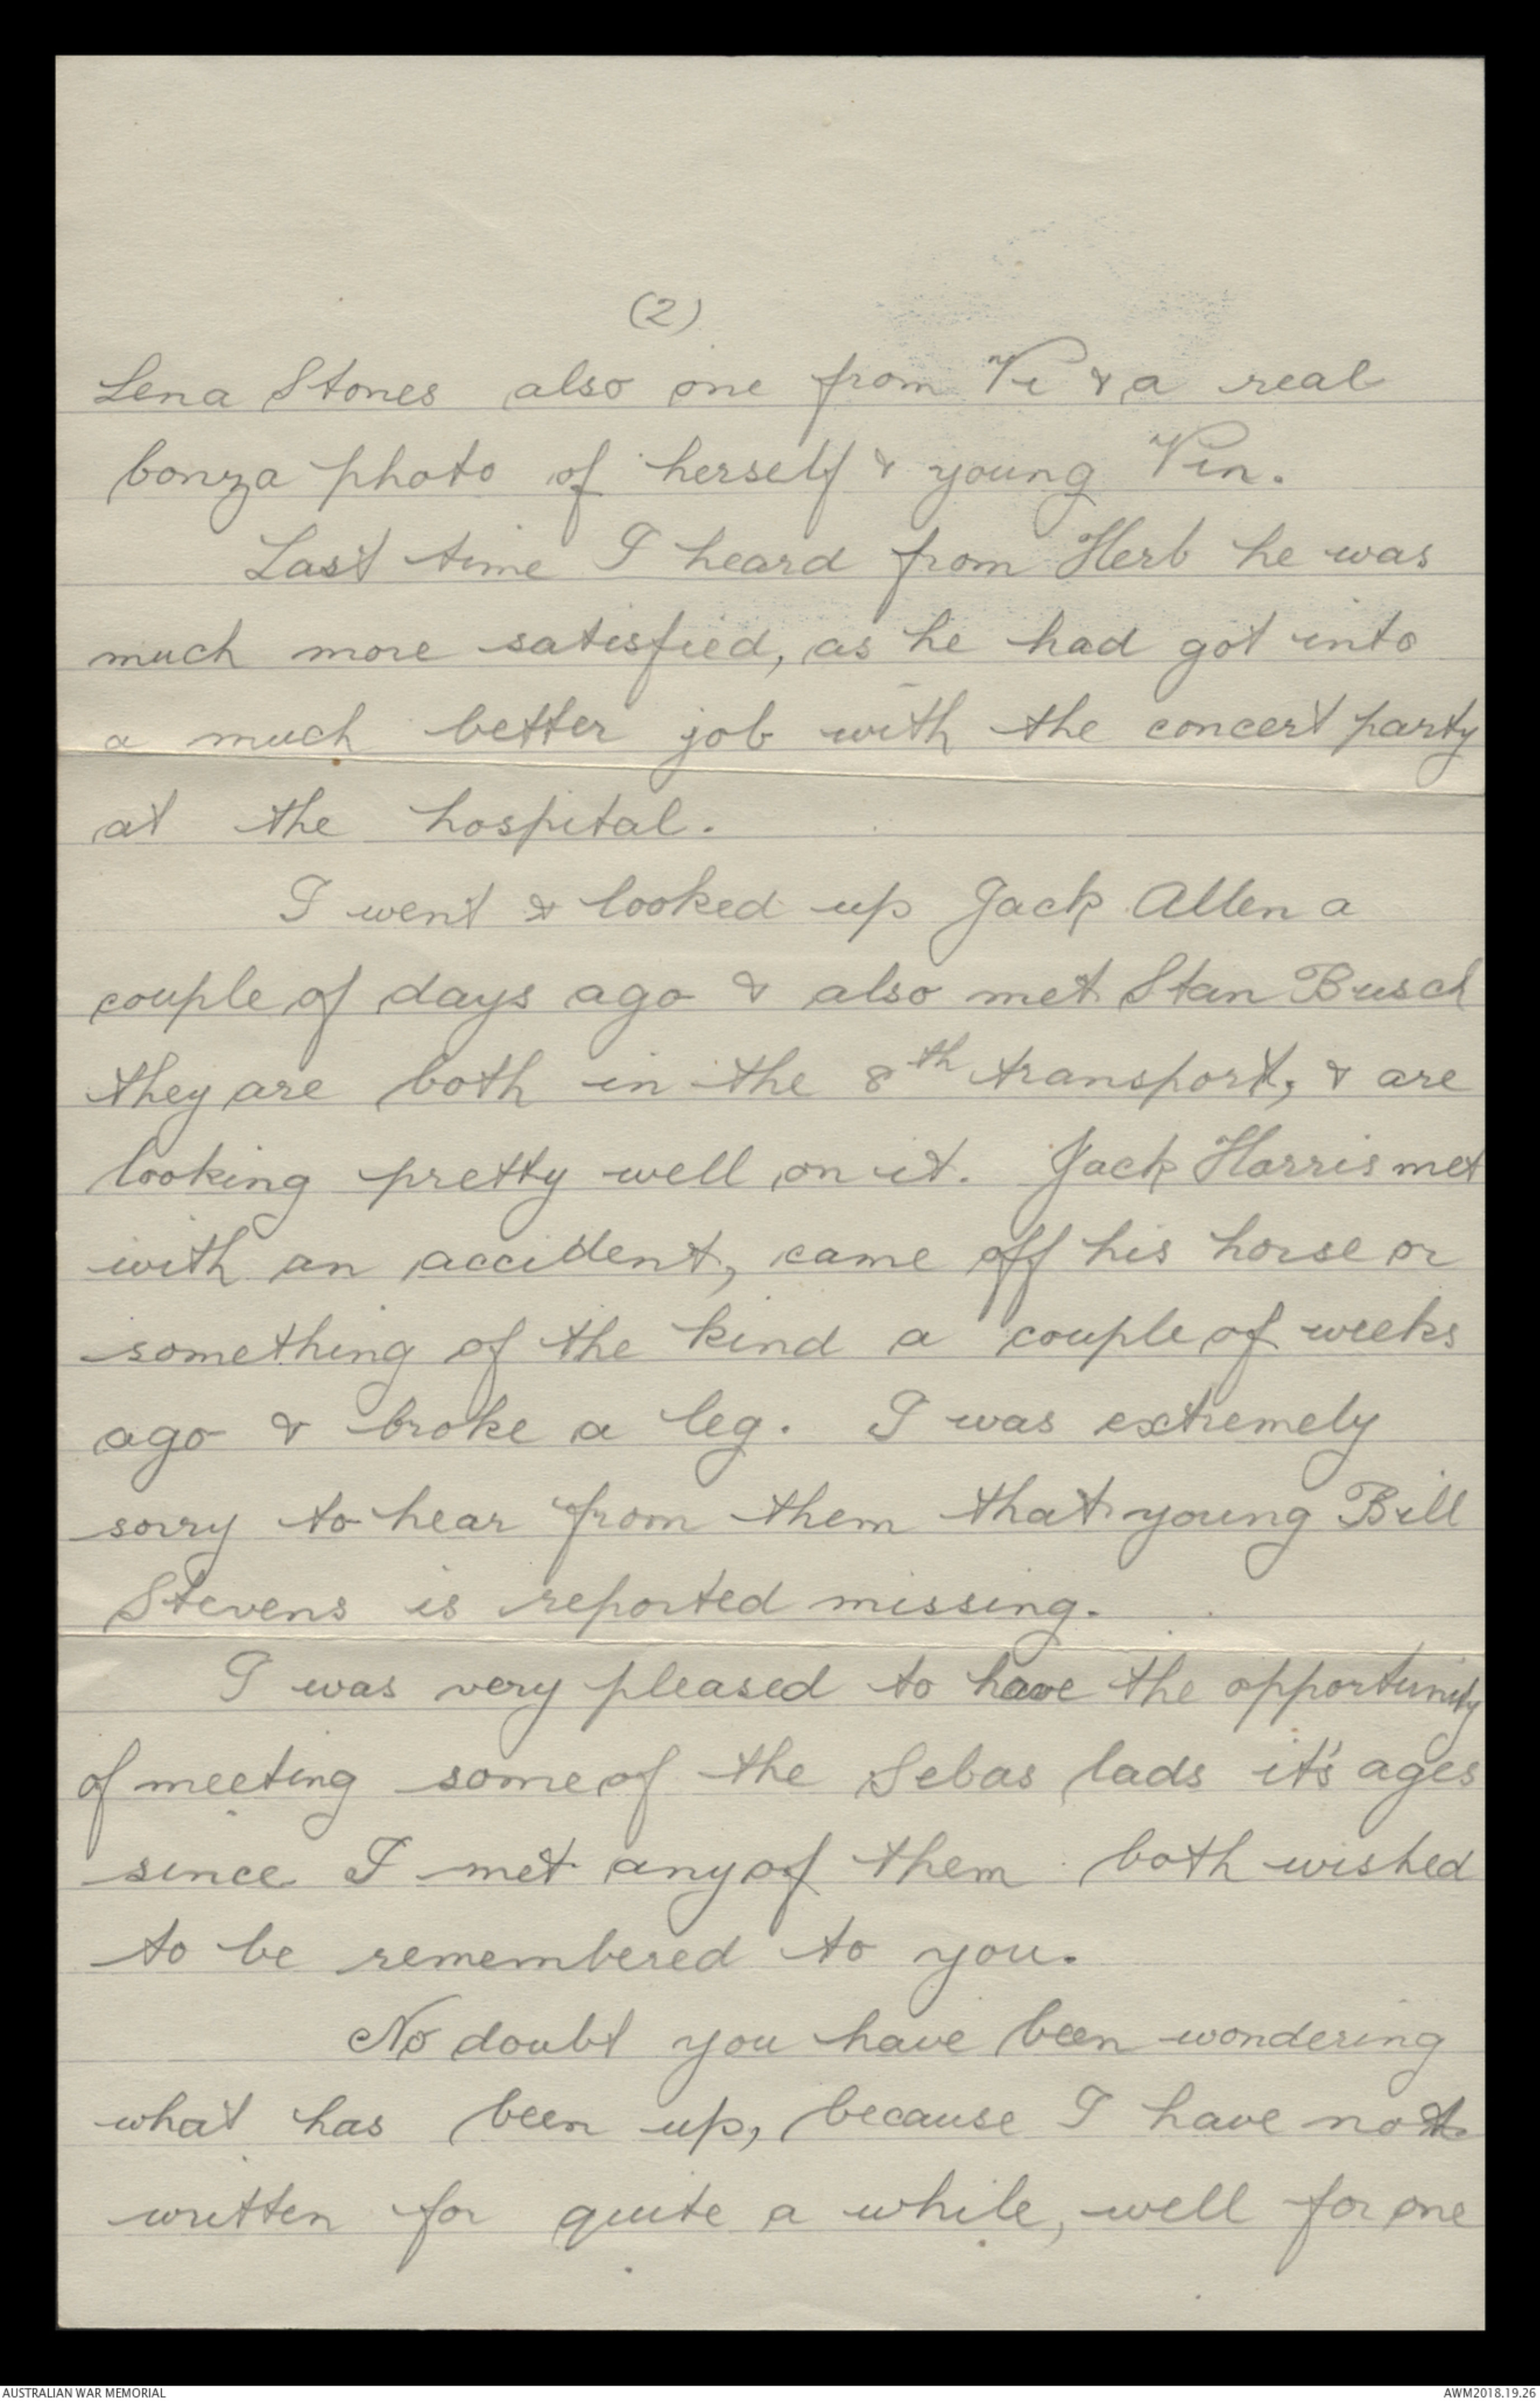 (2)
Lena Stones also one from Vi & a real
bonza photo of herself & young Vin.
Last time I heard from Herb he was
much more satisfied, as he had got into
a much better job with the concert party
at the hospital.
I went & looked up Jack Allen a
couple of days ago & also met Stan Busch
they are both in the 8th transport, & are
looking pretty well on it. Jack Harris met
with an accident, came off his horse or
something of the kind a couple of weeks
ago & broke a leg. I was extremely
sorry to hear from them that young Bill
Stevens is reported missing.
I was very pleased to have the opportunity
of meeting some of the Sebas lads it's ages
since I met any of them both wished
to be remembered to you.
No doubt you have been wondering
what has been up, because I have not
written for quite a while, well for one
AUSTRALIAN WAR MEMORIAL
AWM2018.19.26